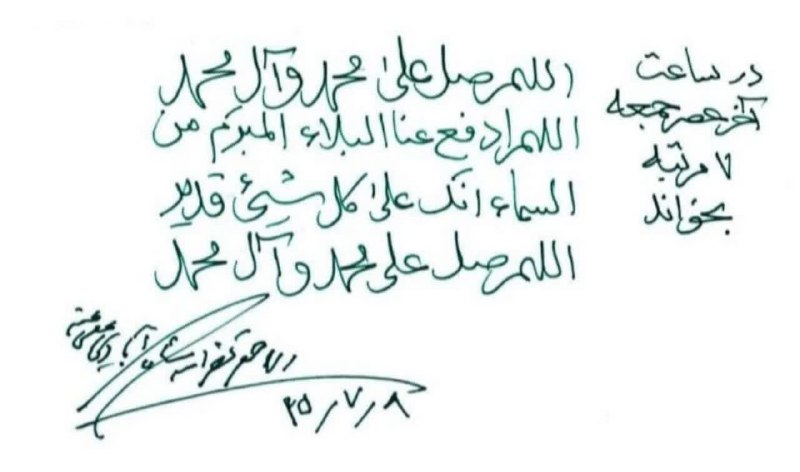 اللهم صل علی محمد وآل محمد
اللهم ادفع عنا البلاء المبرم من
السماء انک علی کل شیئ قدیر
اللهم صل علی محمد وآل محمد
در ساعت
آخر عصر جمعه
۷ مرتبه
بخواند
الاحقر
۲۵/۷/۸